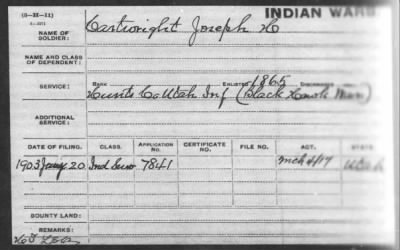 (3-25-11)
INDIAN WARS
NAME OF SOLDIER:
Cartwright Joseph H
NAME AND CLASS OF DEPENDENT:
SERVICE:
RANK
ENLISTED 1865 DISCHARGED
Hunts Co Utah Inf (Black Hawk War)
ADDITIONAL SERVICE:
DATE OF FILING. CLASS. APPLICATION NO. CERTIFICATE NO. FILE NO. ACT. STATE
1903 Jany 20 Ind Surv 7841 Mch 4/17 Utah
BOUNTY LAND:
REMARKS: